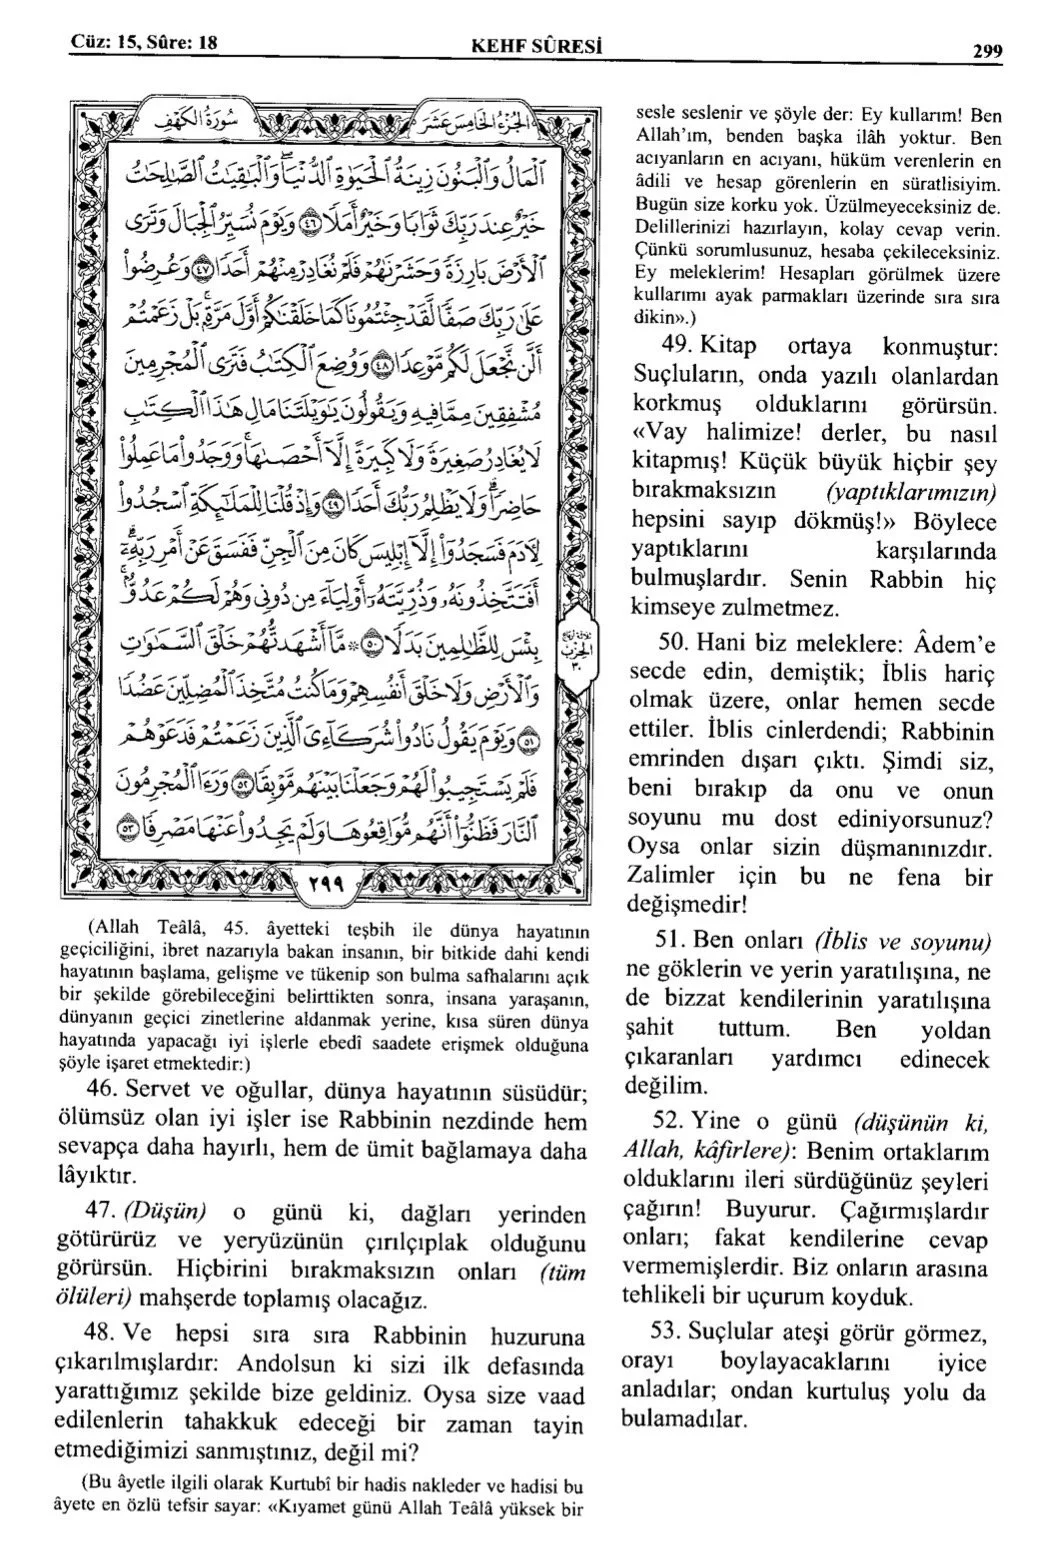 Cüz: 15, Sûre: 18
KEHF SÛRESİ
299
الجزء الخامس عشر
سورة الكهف
ٱلْمَالُ وَٱلْبَنُونَ زِينَةُ ٱلْحَيَوٰةِ ٱلدُّنْيَا وَٱلْبَٰقِيَٰتُ ٱلصَّٰلِحَٰتُ
خَيْرٌ عِندَ رَبِّكَ ثَوَابًا وَخَيْرٌ أَمَلًا ٤٦ وَيَوْمَ نُسَيِّرُ ٱلْجِبَالَ وَتَرَى
ٱلْأَرْضَ بَارِزَةً وَحَشَرْنَٰهُمْ فَلَمْ نُغَادِرْ مِنْهُمْ أَحَدًا ٤٧ وَعُرِضُوا۟
عَلَىٰ رَبِّكَ صَفًّا لَّقَدْ جِئْتُمُونَا كَمَا خَلَقْنَٰكُمْ أَوَّلَ مَرَّةٍۭ بَلْ زَعَمْتُمْ
أَلَّن نَّجْعَلَ لَكُم مَّوْعِدًا ٤٨ وَوُضِعَ ٱلْكِتَٰبُ فَتَرَى ٱلْمُجْرِمِينَ
مُشْفِقِينَ مِمَّا فِيهِ وَيَقُولُونَ يَٰوَيْلَتَنَا مَالِ هَٰذَا ٱلْكِتَٰبِ
لَا يُغَادِرُ صَغِيرَةً وَلَا كَبِيرَةً إِلَّآ أَحْصَىٰهَا وَوَجَدُوا۟ مَا عَمِلُوا۟
حَاضِرًا وَلَا يَظْلِمُ رَبُّكَ أَحَدًا ٤٩ وَإِذْ قُلْنَا لِلْمَلَٰٓئِكَةِ ٱسْجُدُوا۟
لِءَادَمَ فَسَجَدُوٓا۟ إِلَّآ إِبْلِيسَ كَانَ مِنَ ٱلْجِنِّ فَفَسَقَ عَنْ أَمْرِ رَبِّهِۦٓ
أَفَتَتَّخِذُونَهُۥ وَذُرِّيَّتَهُۥٓ أَوْلِيَآءَ مِن دُونِى وَهُمْ لَكُمْ عَدُوٌّۢ
بِئْسَ لِلظَّٰلِمِينَ بَدَلًا ٥٠ مَّآ أَشْهَدتُّهُمْ خَلْقَ ٱلسَّمَٰوَٰتِ
وَٱلْأَرْضِ وَلَا خَلْقَ أَنفُسِهِمْ وَمَا كُنتُ مُتَّخِذَ ٱلْمُضِلِّينَ عَضُدًا
٥١ وَيَوْمَ يَقُولُ نَادُوا۟ شُرَكَآءِىَ ٱلَّذِينَ زَعَمْتُمْ فَدَعَوْهُمْ
فَلَمْ يَسْتَجِيبُوا۟ لَهُمْ وَجَعَلْنَا بَيْنَهُم مَّوْبِقًا ٥٢ وَرَءَا ٱلْمُجْرِمُونَ
ٱلنَّارَ فَظَنُّوٓا۟ أَنَّهُم مُّوَاقِعُوهَا وَلَمْ يَجِدُوا۟ عَنْهَا مَصْرِفًا ٥٣
الحزب
٣٠
٢٩٩
(Allah Teâlâ, 45. âyetteki teşbih ile dünya hayatının
geçiciliğini, ibret nazarıyla bakan insanın, bir bitkide dahi kendi
hayatının başlama, gelişme ve tükenip son bulma safhalarını açık
bir şekilde görebileceğini belirttikten sonra, insana yaraşanın,
dünyanın geçici zinetlerine aldanmak yerine, kısa süren dünya
hayatında yapacağı iyi işlerle ebedî saadete erişmek olduğuna
şöyle işaret etmektedir:)
46. Servet ve oğullar, dünya hayatının süsüdür;
ölümsüz olan iyi işler ise Rabbinin nezdinde hem
sevapça daha hayırlı, hem de ümit bağlamaya daha
lâyıktır.
47. (Düşün) o günü ki, dağları yerinden
götürürüz ve yeryüzünün çırılçıplak olduğunu
görürsün. Hiçbirini bırakmaksızın onları (tüm
ölüleri) mahşerde toplamış olacağız.
48. Ve hepsi sıra sıra Rabbinin huzuruna
çıkarılmışlardır: Andolsun ki sizi ilk defasında
yarattığımız şekilde bize geldiniz. Oysa size vaad
edilenlerin tahakkuk edeceği bir zaman tayin
etmediğimizi sanmıştınız, değil mi?
(Bu âyetle ilgili olarak Kurtubî bir hadis nakleder ve hadisi bu
âyete en özlü tefsir sayar: «Kıyamet günü Allah Teâlâ yüksek bir
sesle seslenir ve şöyle der: Ey kullarım! Ben
Allah’ım, benden başka ilâh yoktur. Ben
acıyanların en acıyanı, hüküm verenlerin en
âdili ve hesap görenlerin en süratlisiyim.
Bugün size korku yok. Üzülmeyeceksiniz de.
Delillerinizi hazırlayın, kolay cevap verin.
Çünkü sorumlusunuz, hesaba çekileceksiniz.
Ey meleklerim! Hesapları görülmek üzere
kullarımı ayak parmakları üzerinde sıra sıra
dikin».)
49. Kitap ortaya konmuştur:
Suçluların, onda yazılı olanlardan
korkmuş olduklarını görürsün.
«Vay halimize! derler, bu nasıl
kitapmış! Küçük büyük hiçbir şey
bırakmaksızın (yaptıklarımızın)
hepsini sayıp dökmüş!» Böylece
yaptıklarını karşılarında
bulmuşlardır. Senin Rabbin hiç
kimseye zulmetmez.
50. Hani biz meleklere: Âdem’e
secde edin, demiştik; İblis hariç
olmak üzere, onlar hemen secde
ettiler. İblis cinlerdendi; Rabbinin
emrinden dışarı çıktı. Şimdi siz,
beni bırakıp da onu ve onun
soyunu mu dost ediniyorsunuz?
Oysa onlar sizin düşmanınızdır.
Zalimler için bu ne fena bir
değişmedir!
51. Ben onları (İblis ve soyunu)
ne göklerin ve yerin yaratılışına, ne
de bizzat kendilerinin yaratılışına
şahit tuttum. Ben yoldan
çıkaranları yardımcı edinecek
değilim.
52. Yine o günü (düşünün ki,
Allah, kâfirlere): Benim ortaklarım
olduklarını ileri sürdüğünüz şeyleri
çağırın! Buyurur. Çağırmışlardır
onları; fakat kendilerine cevap
vermemişlerdir. Biz onların arasına
tehlikeli bir uçurum koyduk.
53. Suçlular ateşi görür görmez,
orayı boylayacaklarını iyice
anladılar; ondan kurtuluş yolu da
bulamadılar.